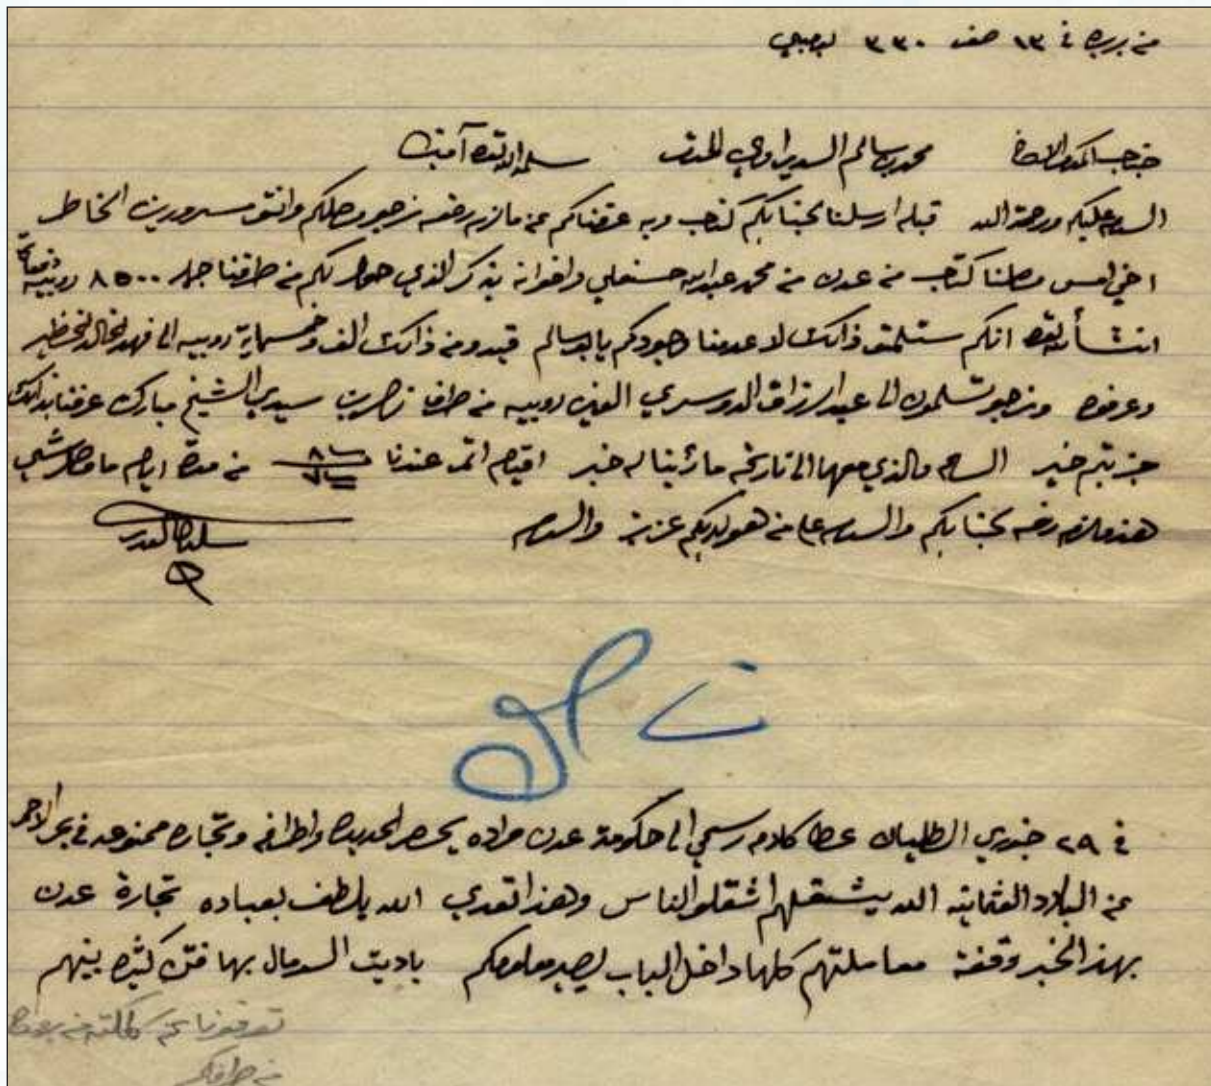 من بربره في ١٣ صفر ٣٣٠ لبمبي
جناب الاخ محمد بن سالم السديراوي المحترم سلمه الله تعالى آمين
السلام عليكم ورحمة الله قبله ارسلنا لجنابكم كتاب وبه عرفناكم عن ما لزم رفعه نرجو وصلكم وانتو مسرورين الخاطر
اخي امس وصلنا كتاب من عدن من محمد عبدالله حسنعلي واخوانه يذكر الذي حول بكم من طرفنا ٨٥٠٠ روبيه
انشأ الله تعالى انكم ستلمتو ذالك لا عدمنا وجودكم يا بو سالم قيدو من ذالك الف وخمسماية روبيه الى فهد الخالد الخضير
وعرفوه ونرجو تسلمون الى عبدالرزاق الدوسري الفين روبيه من طرف سيدي الشيخ مبارك عرفنا بذالك
جزيتم خير والذي معها الى تاريخه ما رئينا له خبر اقيام عندنا من مدة ايام ما وصل شي
هذا ما لزم رفعه لجنابكم والسلام على من هو لديكم عزيز والسلام
في ٢٩ جنوري الطليان عطا كلام رسمي الى حكومة عدن مراده يحصر الحديده واطرافه وتجاره ممنوعه في بحر الاحمر
عن البلاد العثمانيه الله يشغلهم اشغلو الناس وهذا تعدي الله يلطف بعباده تجارة عدن
بهذا الخبر وقفة معاملتهم كلها داخل الباب باديت السومال بها فتن كثيره بينهم